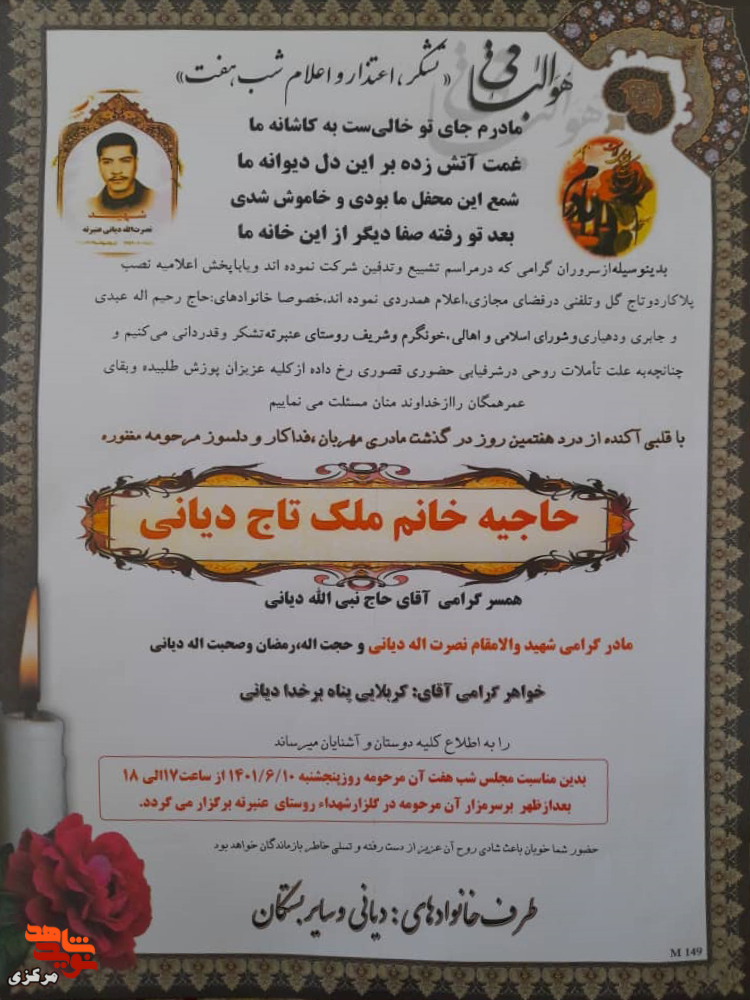 هوالباقی
«تشکر، اعتذار و اعلام شب هفت»
مادرم جای تو خالی‌ست به کاشانه ما
غمت آتش زده بر این دل دیوانه ما
شمع این محفل ما بودی و خاموش شدی
بعد تو رفته صفا دیگر از این خانه ما
شهید
نصرت‌الله دیانی عنبرته
مادرم
بدینوسیله‌ازسروران گرامی که درمراسم تشییع وتدفین شرکت نموده اند ویاباپخش اعلامیه نصب
پلاکاردوتاج گل وتلفنی درفضای مجازی،اعلام همدردی نموده اند،خصوصا خانوادهای:حاج رحیم اله عبدی
و جابری ودهیاری‌وشورای اسلامی و اهالی،خونگرم وشریف روستای عنبرته‌تشکر وقدردانی می‌کنیم و
چنانچه‌به علت تأملات روحی درشرفیابی حضوری قصوری رخ داده ازکلیه عزیزان پوزش طلبیده وبقای
عمرهمگان راازخداوند منان مسئلت می نماییم
با قلبی آکنده از درد هفتمین روز در گذشت مادری مهربان ،فداکار و دلسوز مرحومه مغفوره
حاجیه خانم ملک تاج دیانی
همسر گرامی آقای حاج نبی الله دیانی
مادر گرامی شهید والامقام نصرت اله دیانی و حجت اله،رمضان وصحبت اله دیانی
خواهر گرامی آقای: کربلایی پناه برخدا دیانی
را به اطلاع کلیه دوستان و آشنایان میرساند
بدین مناسبت مجلس شب هفت آن مرحومه روزپنجشنبه ۱۴۰۱/۶/۱۰ از ساعت۱۷الی ۱۸
بعدازظهر برسرمزار آن مرحومه در گلزارشهداء روستای عنبرته برگزار می گردد.
حضور شما خوبان باعث شادی روح آن عزیز از دست رفته و تسلی خاطر بازماندگان خواهد بود
طرف خانوادهای: دیانی و سایر بستگان
M 149
نوید شاهد
مرکزی